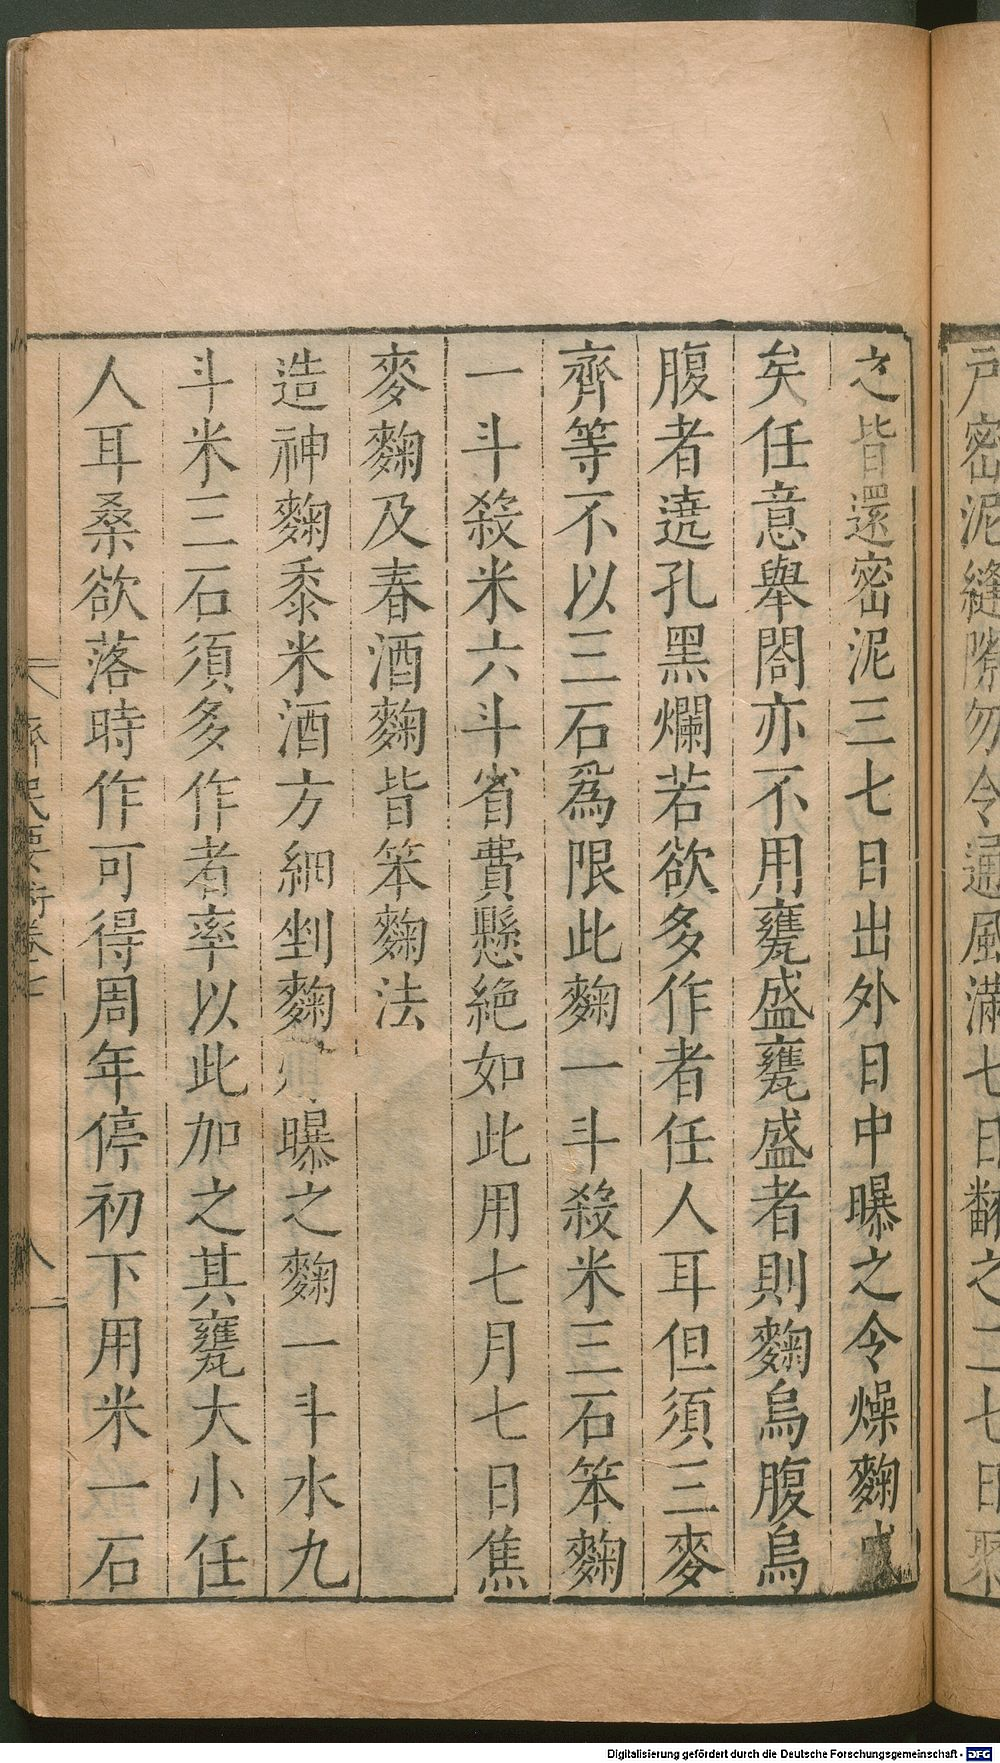 戸密泥縫隙勿令通風滿七日翻之二七日聚
之皆還密泥三七日出外日中曝之令燥麴成
矣任意舉閣亦不用甕盛甕盛者則麴烏腹烏
腹者遶孔黑爛若欲多作者任人耳但須三麥
齊等不以三石爲限此麴一斗殺米三石笨麴
一斗殺米六斗省費懸絶如此用七月七日焦
麥麴及春酒麴皆笨麴法
造神麴黍米酒方細剉麴 曝之麴一斗水九
斗米三石須多作者率以此加之其甕大小任
人耳桑欲落時作可得周年停初下用米一石
齊民要術卷七
八
Digitalisierung gefördert durch die Deutsche Forschungsgemeinschaft - DFG